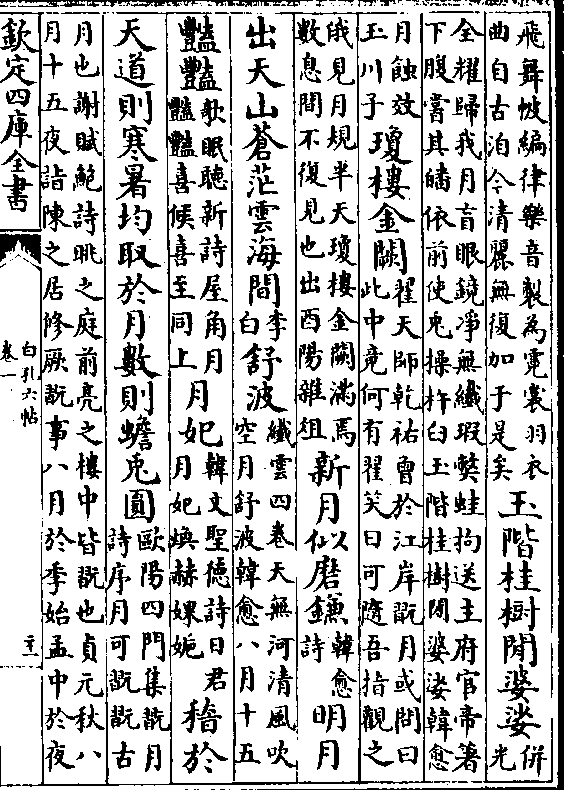 飛舞帔編律樂音製為霓裳羽衣
曲自古洎今清麗無復加于是矣
玉階桂樹閒婆娑
併
光
全耀歸我月盲眼鏡凈無纖瑕獘蛙拘送主府官帝箸
下腹嘗其皤依前使兎操杵臼玉階桂樹閒婆娑韓愈
月蝕效
玉川子
瓊樓金闕
翟天師乾祐曾於江岸翫月或問曰
此中竟何有翟笑曰可隨吾指觀之
俄見月規半天瓊樓金闕滿焉
數息間不復見也出酉陽雜俎
新月似磨鎌
韓愈
詩
明月
出天山蒼茫雲海間
李
白
舒波
纖雲四卷天無河清風吹
空月舒波韓愈八月十五
豔豔
歌眠聽新詩屋角月
豔豔喜候喜至同上
月妃
韓文聖德詩曰君
月妃煥赫婐㛂
稽於
天道則寒暑均取於月數則蟾兎圓
歐陽四門集翫月
詩序月可翫翫古
月也謝賦鮑詩眺之庭前亮之樓中皆翫也貞元秋八
月十五夜詣陳之居修厥翫事八月於季始孟中於夜
欽定四庫全書
白孔六帖
卷一